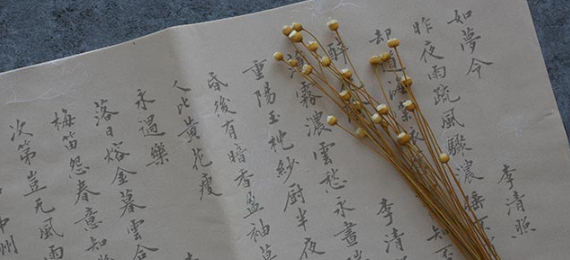 如夢令 李清照
昨夜雨疏風驟濃睡不
却道海棠 知否
醉 李清
霧濃雲愁永晝瑞
重陽玉枕紗厨半夜
昏後有暗香盈袖莫
人比黃花瘦
永遇樂
落日熔金暮雲合
梅笛怨春意知
次第豈无風雨
中州